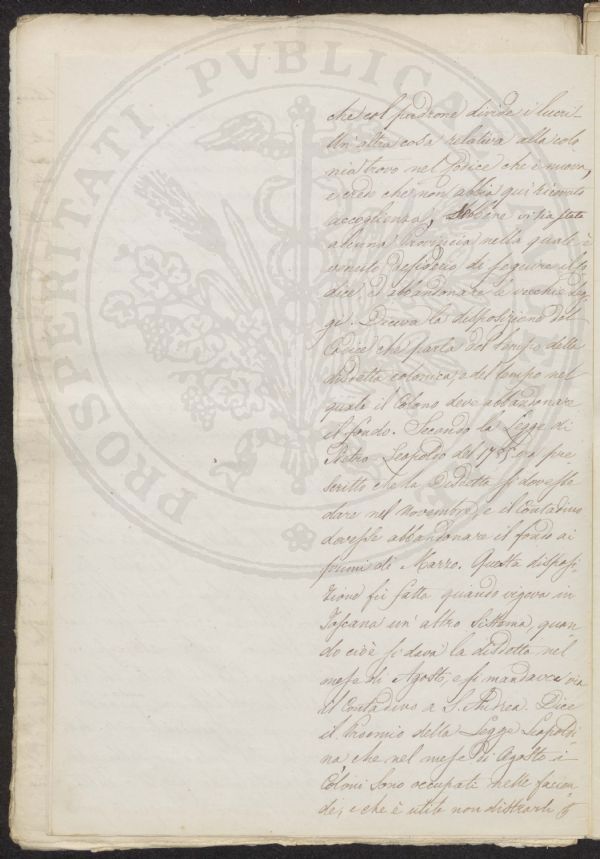 PROSPERITATI PVBLICAE
che col padrone divide i lucri.
Un'altra cosa relativa alla colo
nia trovo nel Codice che è nuova,
e credo che non abbia qui ricevuto
accoglienza, sebbene vi sia stata
alcuna Provincia nella quale è
venuto desiderio di seguire il Co
dice, e abbandonare le vecchie Leg
gi. Diceva la disposizione del
Codice che parla del tempo della
disdetta colonica, e del tempo nel
quale il Colono deve abbandonare
il fondo. Secondo la Legge di
Pietro Leopoldo del 1785 era pre
scritto che la Disdetta si dovesse
dare nel Novembre, e il Contadino
dovesse abbandonare il fondo ai
primi di Marzo. Questa disposi-
zione fu fatta quando vigeva in
Toscana un'altro Sistema, quan
do cioè si dava la disdetta nel
mese di Agosto, e si mandava via
il Contadino a S. Andrea. Dice
il Proemio della Legge Leopoldi
na che nel mese di Agosto i
Coloni sono occupati nelle faccen
de, e che è utile non distrarli